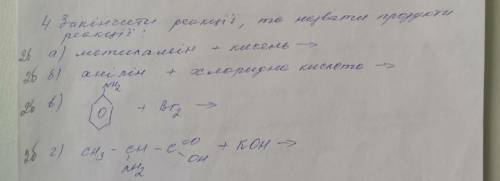 4. Закінчити реакції, та назвати продукти
реакції:
2б а) метиламін + кисень →
2б б) анілін + хлоридна кислота →
2б в) NH2 + Br2 →
2б г) CH3 - CH - C =O OH + KOH →
NH2